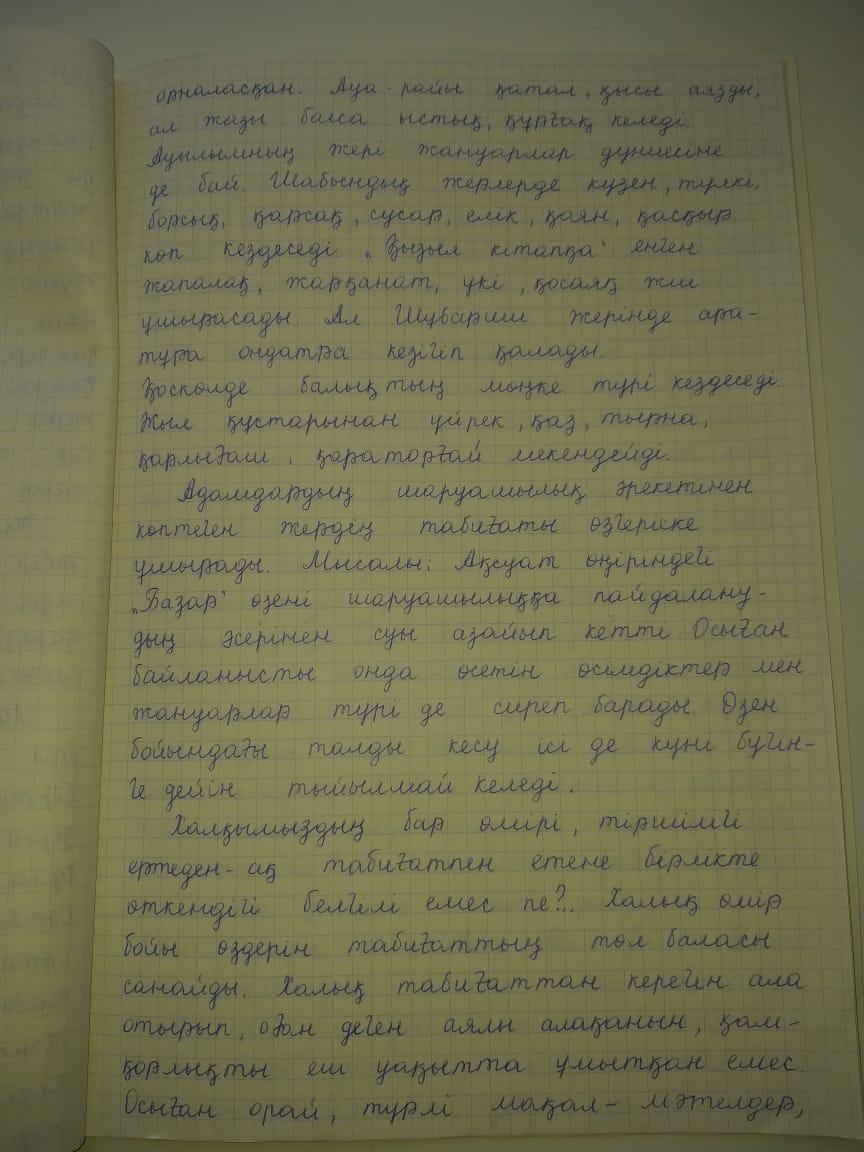 орналасқан. Ауа-райы қатал, қысы аязды,
ал жазы болса ыстық, құрғақ келеді.
Ауылымның жері жануарлар дүниесіне
де бай. Шабындық жерлерде күзен, түлкі,
борсық, қарсақ, сусар, елік, қоян, қасқыр
көп кездеседі. „Қызыл кітапқа" енген
жапалақ, жарқанат, үкі, қосаяқ жиі
ұшырасады. Ал Шұбаршы жерінде ара-
тұра ондатра кезігіп қалады.
Қоскөлде балықтың мөңке түрі кездеседі.
Жыл құстарынан үйрек, қаз, тырна,
қарлығаш, қараторғай мекендейді.
Адамдардың шаруашылық әрекетінен
көптеген жердің табиғаты өзгеріске
ұшырады. Мысалы: Ақсуат өңіріндегі
„Базар" өзені шаруашылыққа пайдалану-
дың әсерінен суы азайып кетті. Осыған
байланысты онда өсетін өсімдіктер мен
жануарлар түрі де сиреп барады. Өзен
бойындағы талды кесу ісі де күні бүгін-
ге дейін тыйылмай келеді.
Халқымыздың бар өмірі, тіршілігі
ертеден-ақ табиғатпен етене бірлікте
өткендігі белгілі емес пе?.. Халық өмір
бойы өздерін табиғаттың төл баласы
санайды. Халық табиғаттан керегін ала
отырып, оған деген аялы алақанын, қам-
қорлықты еш уақытта ұмытқан емес.
Осыған орай, түрлі мақал-мәтелдер,